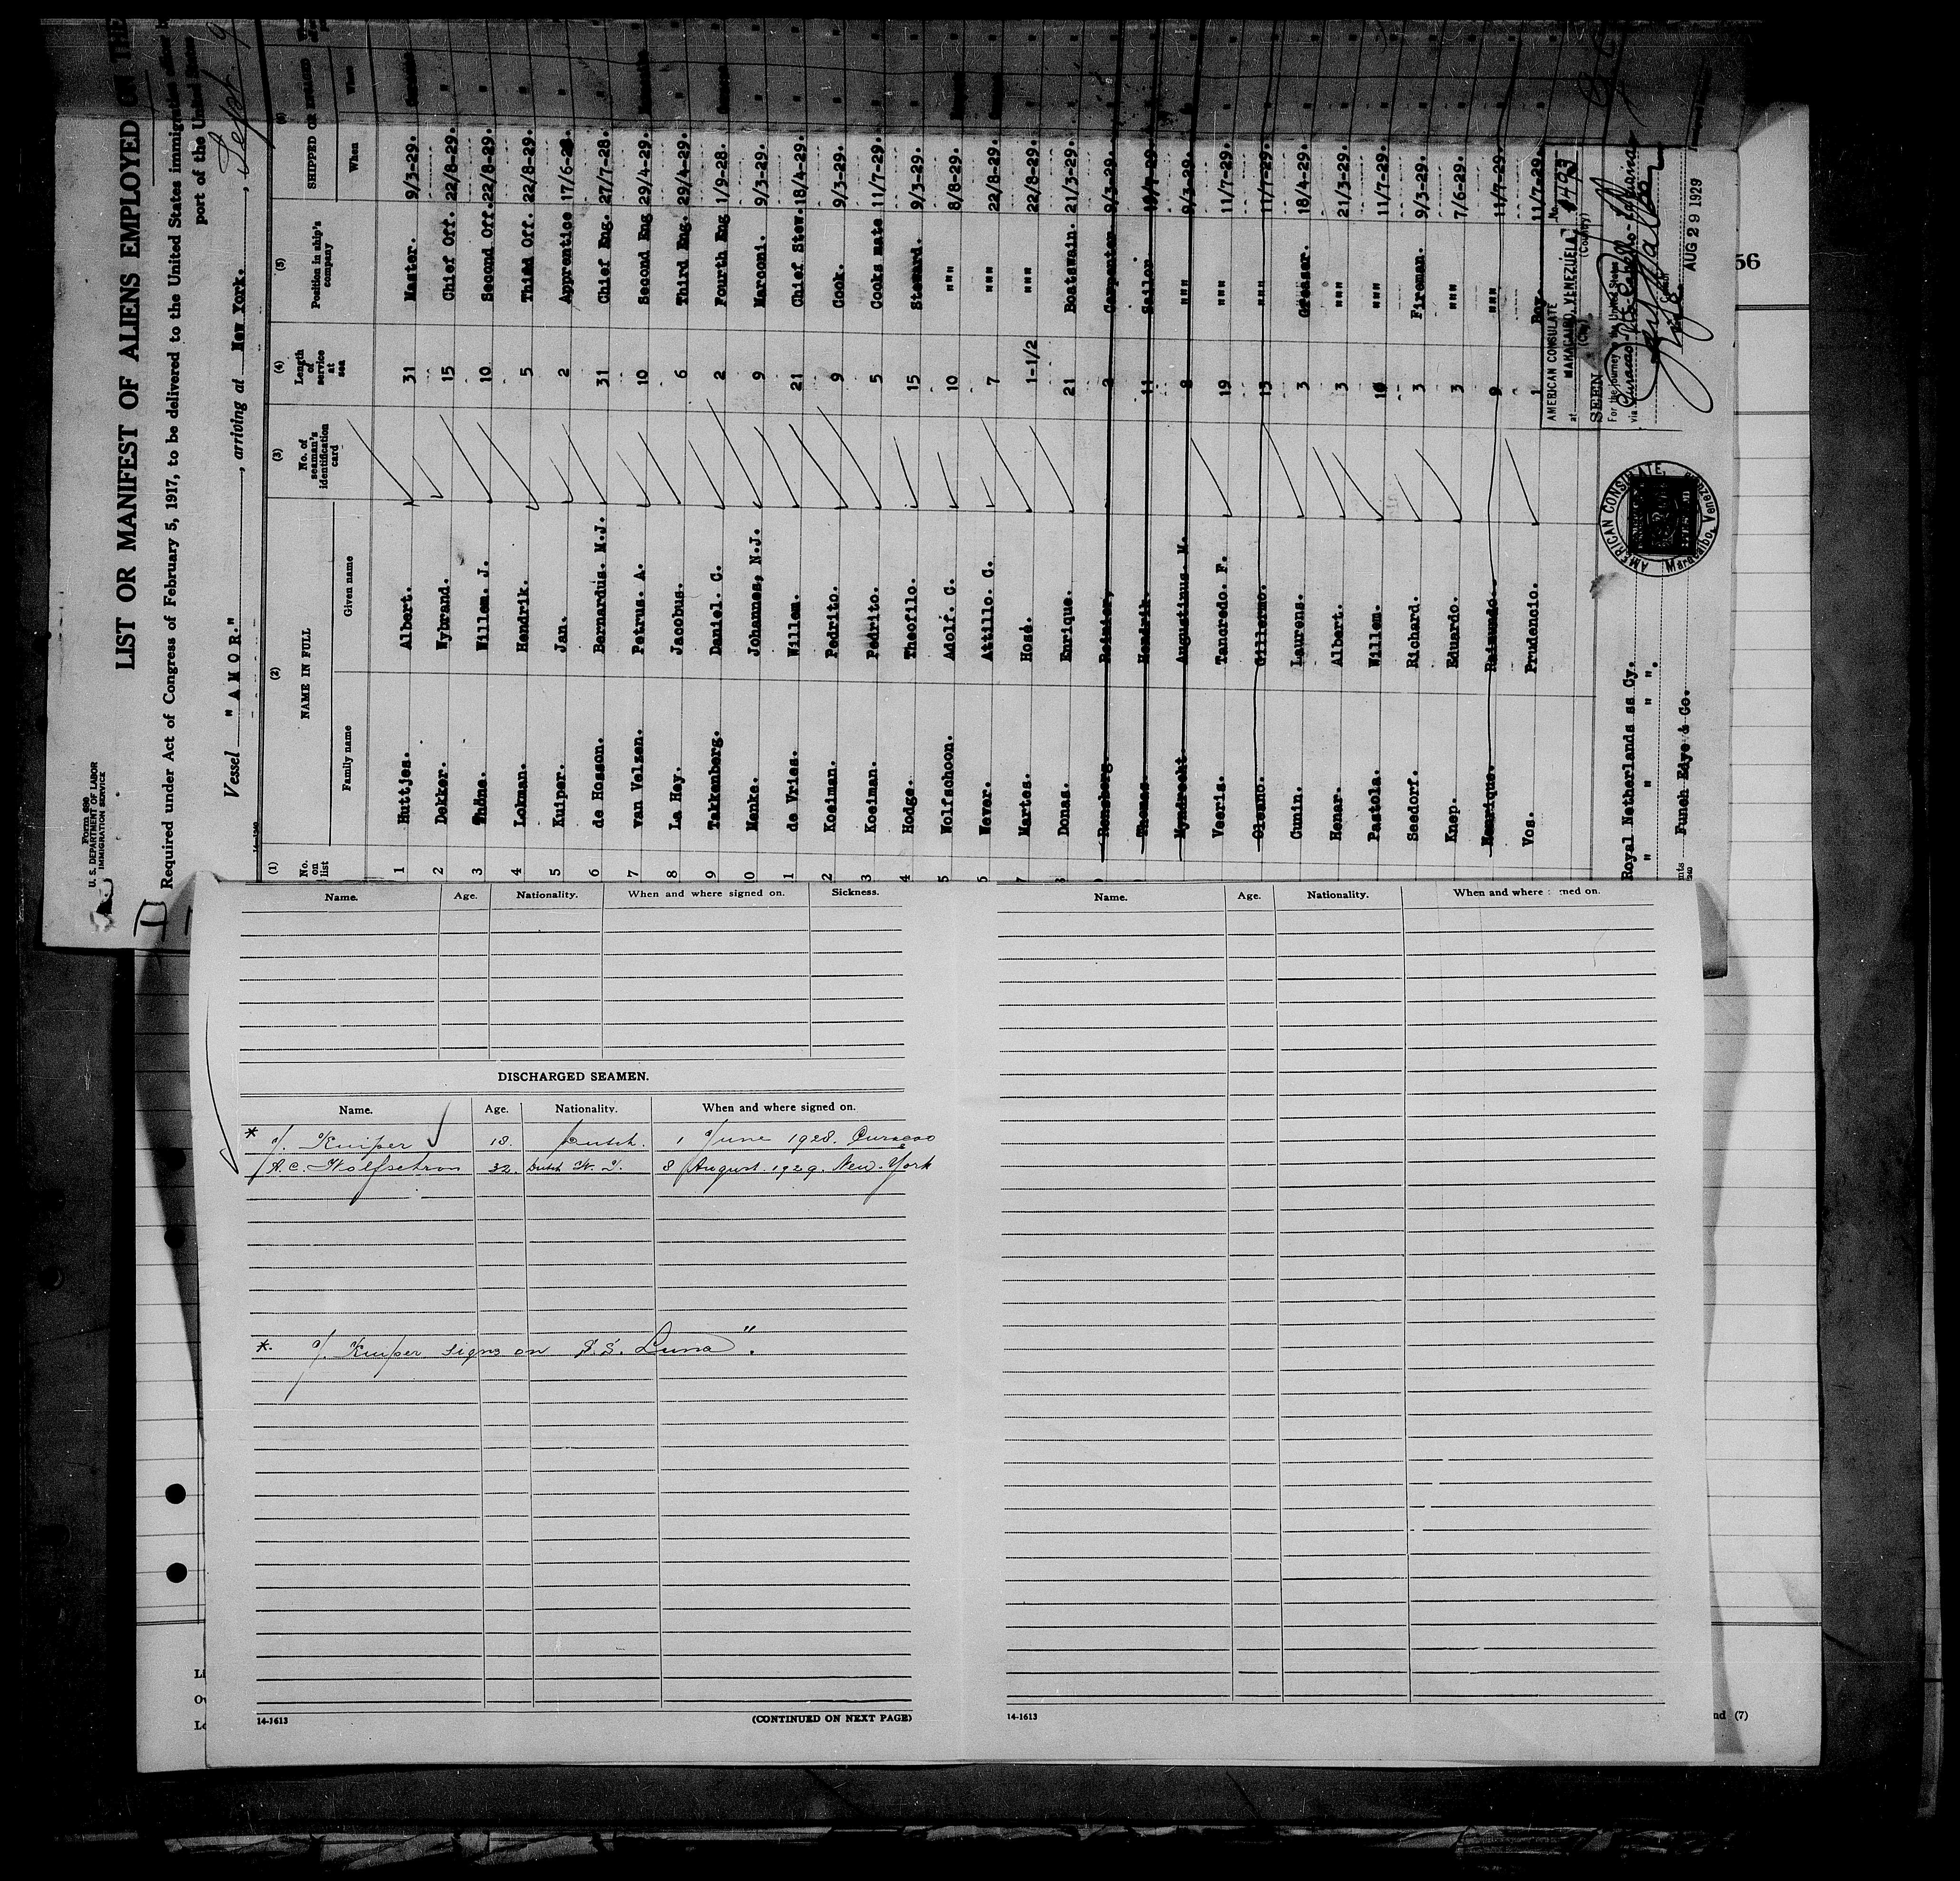 Form 680
U. S. DEPARTMENT OF LABOR
IMMIGRATION SERVICE
LIST OR MANIFEST OF ALIENS EMPLOYED ON THE
Required under Act of Congress of February 5, 1917, to be delivered to the United States immigration
port of the United States
Vessel "AMOR." , arriving at New York. , Sept 9
(1) (2) (3) (4) (5) (6)
No. on list NAME IN FULL No. of seaman's identification card Length of service at sea Position in ship's company SHIPPED OR ENGAGED
Family name Given name When Where
1 Huttjes. Albert. 31 Master. 9/3-29. Curacao
2 Dekker. Wybrand. 15 Chief Off. 22/8-29. "
3 Thöne. Willem. J. 10 Second Off. 22/8-29. "
4 Lokman. Hendrik. 5 Third Off. 22/8-29. "
5 Kuiper. Jan. 2 Apprentice 17/6-28. "
6 de Hosson. Bernardus. M.J. 31 Chief Eng. 27/7-28. "
7 van Velzen. Petrus. A. 10 Second Eng 29/4-29.
8 La Hey. Jacobus. 6 Third Eng. 29/4-29. "
9 Takkenberg. Daniel. C. 2 Fourth Eng 1/9-28. Curacao
0 Menke. Johannes, N.J. 9 Marconi. 9/3-29. "
1 de Vries. Willem. 21 Chief Stew. 18/4-29. "
2 Koeiman. Pedrito. 9 Cook. 9/3-29. "
3 Koeiman. Pedrito. 5 Cooks mate 11/7-29. "
4 Hodge. Theofilo. 15 Steward. 9/3-29. "
5 Wolfschoon. Adolf. C. 10 """ 8/8-29.
6 Wever. Attillo. C. 7 """ 22/8-29. Curacao
7 Martes. Hosé. 1-1/2 """ 22/8-29. "
8 Donas. Enrique. 21 Boatswain. 21/3-29. "
Rensberg. Reinier, 2 Carpenter 9/3-29. "
Thomas. Hendrik. 11 Sailor 19/7-29. "
Mydrecht. Augustinus M. 8 """ 9/3-29. "
Veeris. Tancredo. F. 19 """ 11/7-29. "
Oleano. Gillermo. 13 """ 11/7-29. "
Cunin. Laurens. 3 Greaser. 18/4-29. "
Henar. Albert. 3 """ 21/3-29. "
Pastola. Willem. 10 """ 11/7-29. "
Seedorf. Richard. 3 Fireman. 9/3-29. "
Knep. Eduardo. 3 """ 7/6-29. "
Henrique. Raimundo. 9 """ 11/7-29. "
Vos. Prudencio. 1 Boy. 11/7-29. "
Royal Netherlands ss Cy.
" " ".
Funch Edye & Co.
AMERICAN CONSULATE
at MARACAIBO, VENEZUELA No. 1493
(City) (Country)
SEEN
For the journey to the United States
via Curacao - Pto. Cabello - La Guaira
AUG 29 1929
AMERICAN CONSULATE,
Maracaibo, Venezuela
56
Name. Age. Nationality. When and where signed on. Sickness.
DISCHARGED SEAMEN.
Name. Age. Nationality. When and where signed on.
* J. Kuiper 18. Dutch. 1 June 1928. Curacao
A. C. Wolfschoon 32. Dutch W. I. 8 August. 1929. New-York
*. J. Kuiper signs on S.S. Luna".
14-1613 (CONTINUED ON NEXT PAGE)
Name. Age. Nationality. When and where signed on.
14-1613
nd (7)